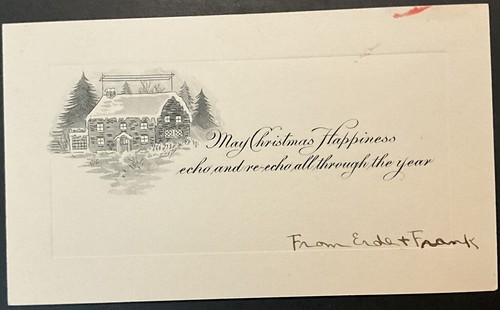 May Christmas Happiness
echo and re-echo all through the year
From Erde + Frank